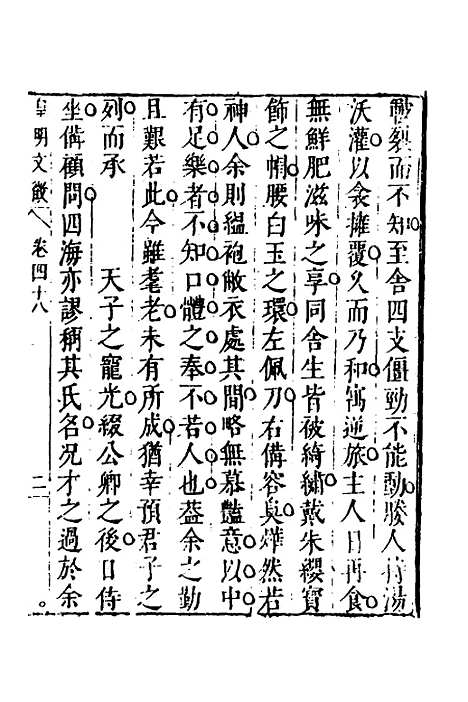 皸裂而不知至舍四支僵勁不能動媵人持湯
沃灌以衾擁覆久而乃和寓逆旅主人日再食
無鮮肥滋味之享同舍生皆被綺繡戴朱纓寶
飾之帽腰白玉之環左佩刀右備容臭燁然若
神人余則縕袍敝衣處其間略無慕豔意以中
有足樂者不知口體之奉不若人也葢余之勤
且艱若此今雖耄老未有所成猶幸預君子之
列而承　天子之寵光綴公卿之後日侍
坐偹顧問四海亦謬稱其氏名况才之過於余
皇明文徵　卷四十八　二